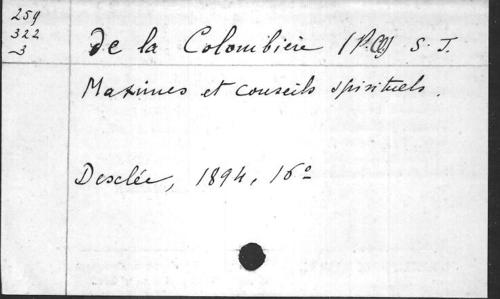 259
322
-3
de la Colombière (P. Cl) S. J.
Maximes et conseils spirituels.
Desclée, 1894, 16°